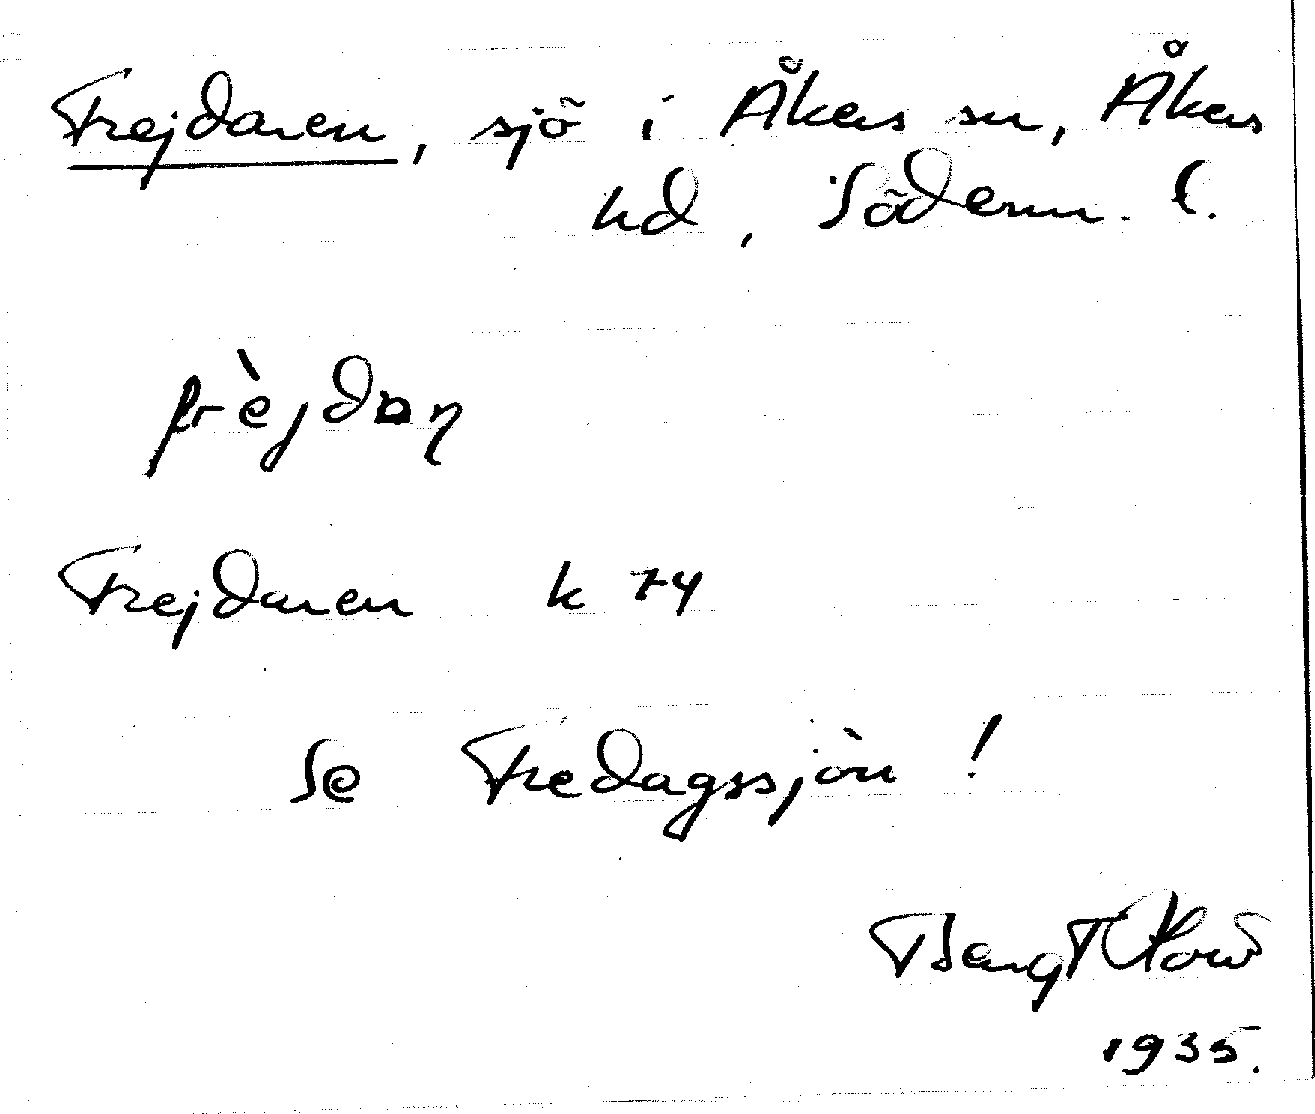 Frejdaren, sjö i Åkers sn, Åkers
hd, Söderm. l.
Frejdaren k 74
Se Fredagssjön!
Bengt
1935.